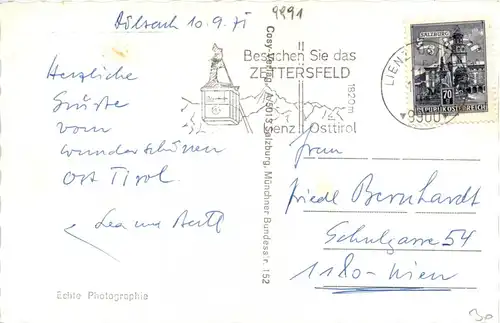 Dölsach 10.9.71
9991
Herzliche
Grüsse
vom
wunderschönen
Ost Tirol
Lea und Bertl
Echte Photographie
Cosy-Verlag, A/5013 Salzburg, Münchner Bundesstr. 152
Besuchen Sie das
ZETTERSFELD
1820m
Lienz Osttirol
LIENZ
9900
SALZBURG
70
REPUBLIK ÖSTERREICH
Frau
Friedl Bernhardt
Schulgasse 54
1180-Wien
30